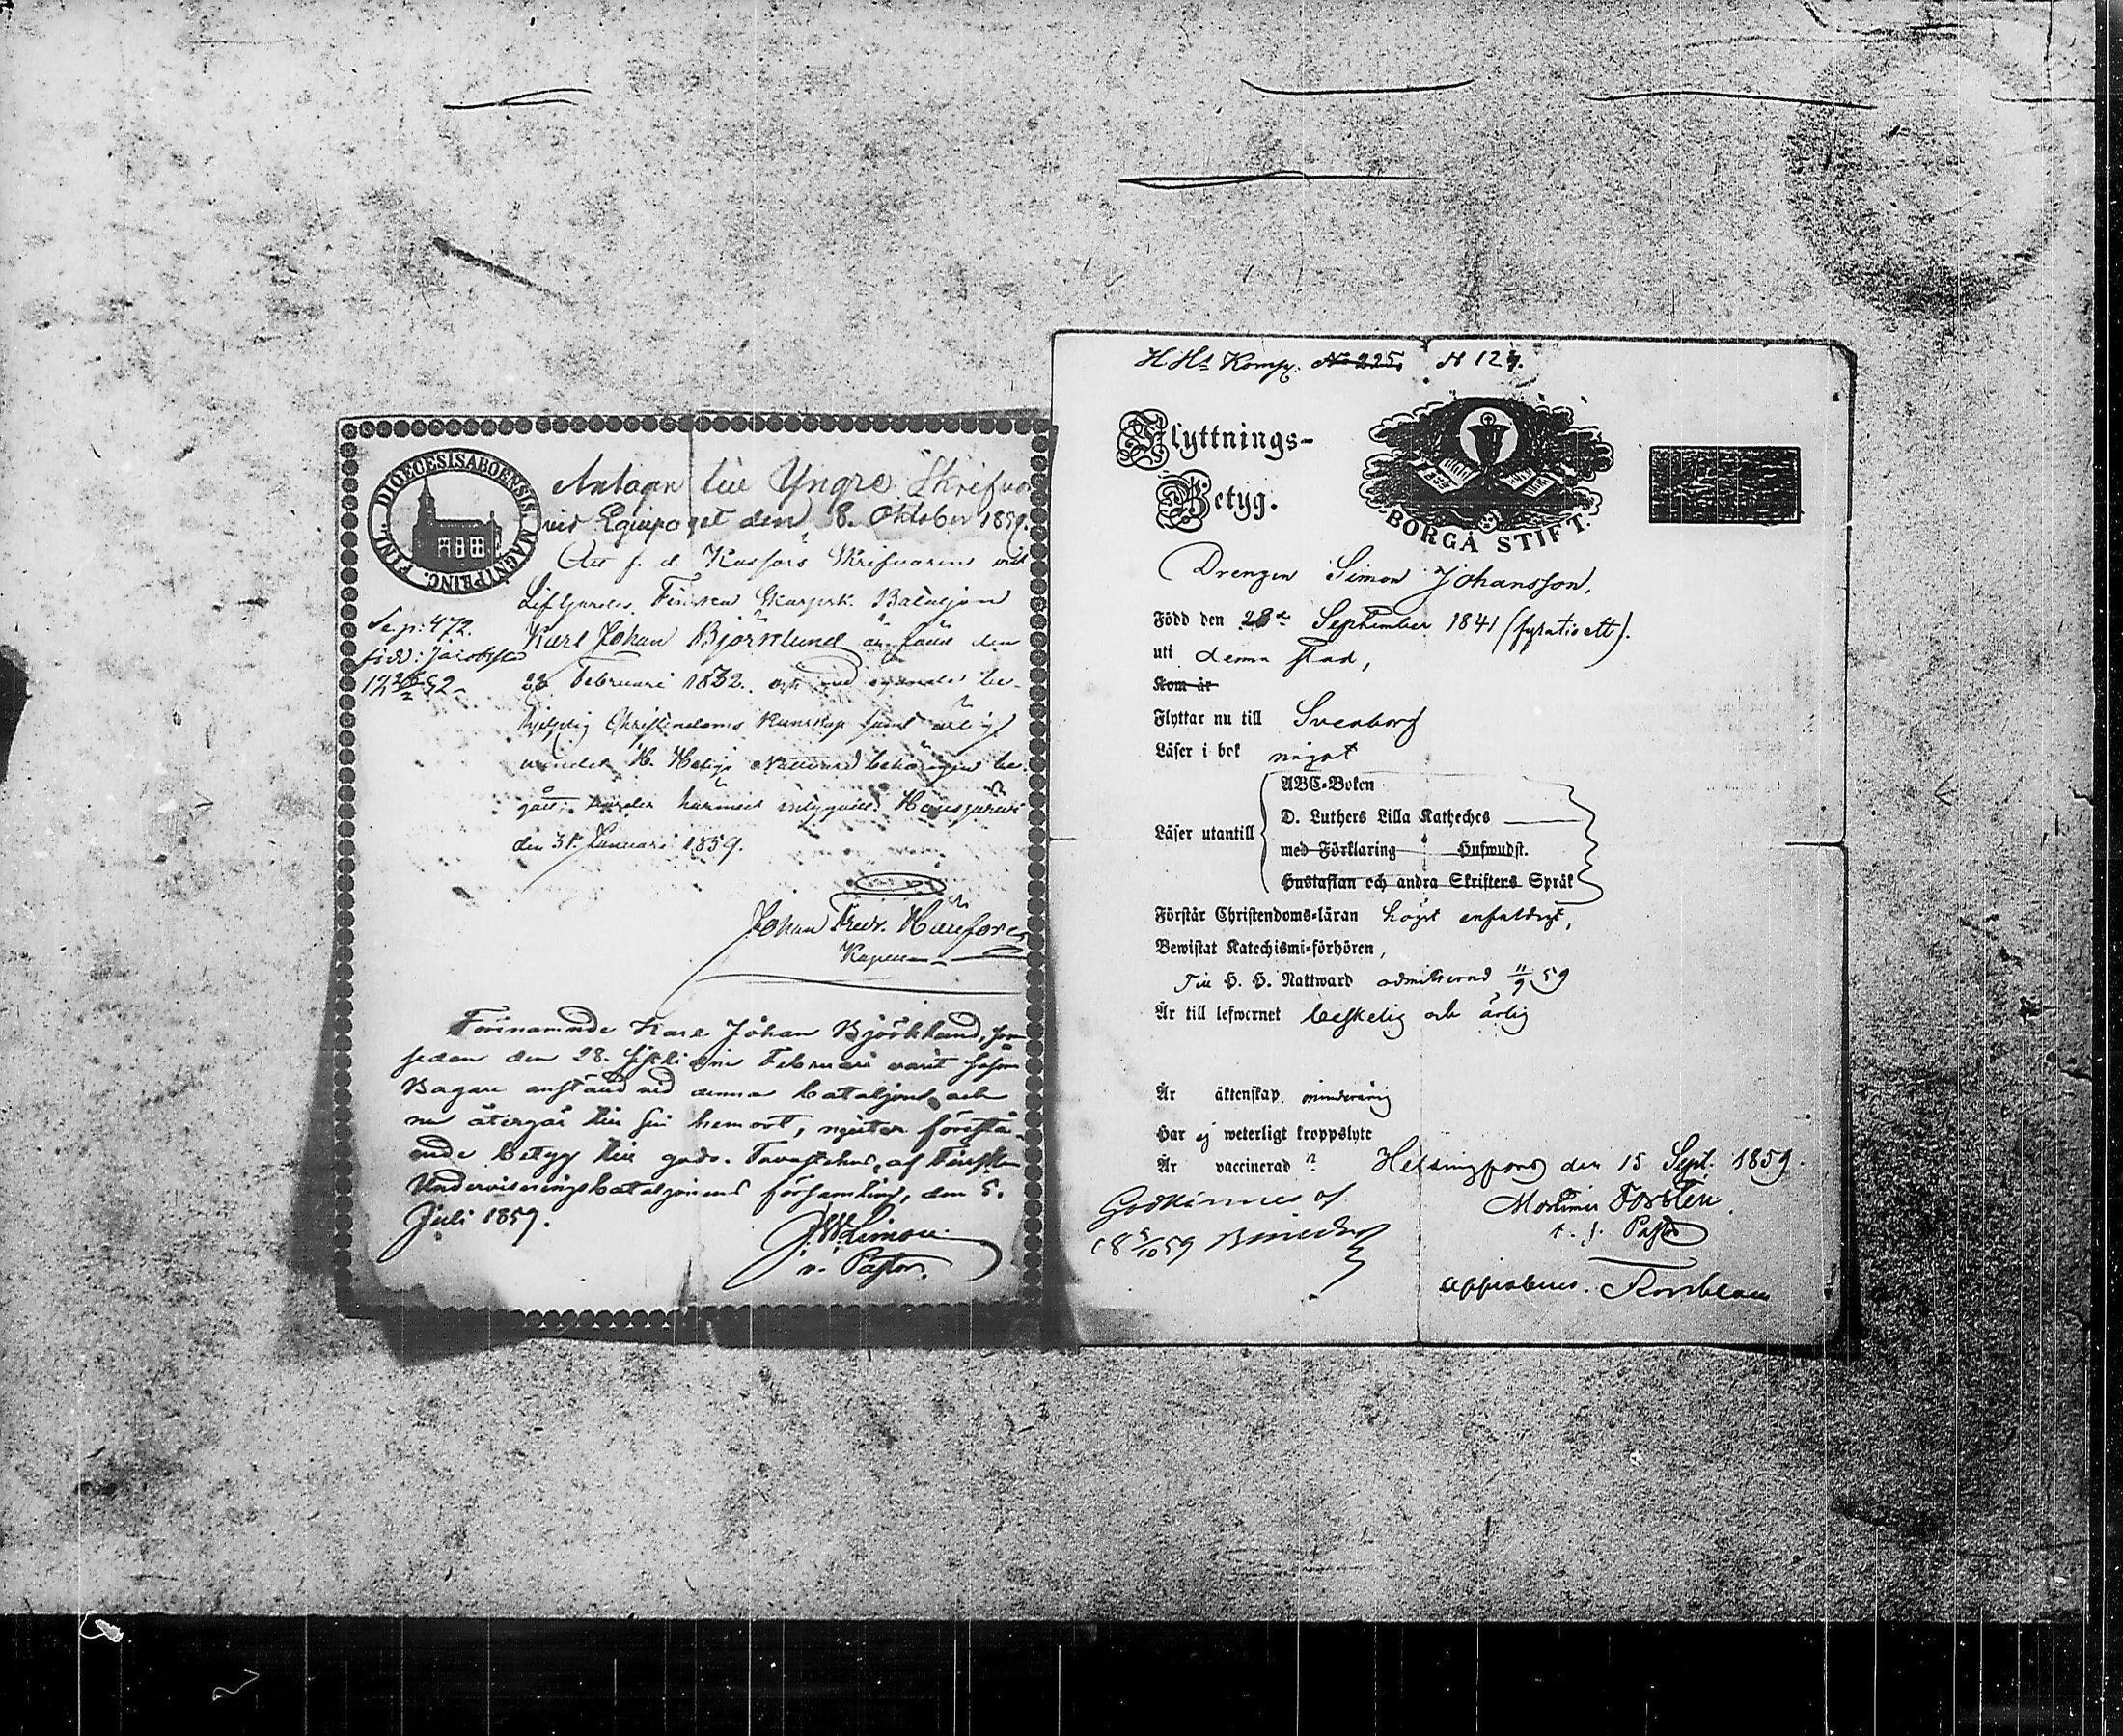 DIOECESISABOENSIS. MAGNIPRINC. FINL.
Antagen till Yngre Skrifvare
vid Equipaget den 8. Oktober 1859.
Att f. d. Kusfors Skrifvaren vid
Lifgardes Finska Skarpsk. Bataljon
Karl Johan Björklund är född den
22 Februari 1832. och med
Christendoms kunskap samt
H. Heliga Nattvard behörigen be-
gått; varder härmed Hausjärvi
den 31. Januari 1859.
Sep: 472.
född: Jacobstad
Johan Fredr.
Kapellan
Förenämnde Karl Johan Björklund, som
sedan den 28. sistledne Februari varit såsom
Bagare anställd vid denna bataljon och
nu återgår till sin hemort, njuter förestå-
ende betyg till godo. Tavastehus, af Finska
Undervisningsbataljonens församling, den 5.
Juli 1859.
v. Pastor.
H Hs Komp. No 225, N 124.
Flyttnings-
Betyg.
BORGÅ STIFT.
Drengen Simon Johansson,
Född den 28de September 1841 (fyratioett).
uti denna stad,
Kom år
Flyttar nu till Sveaborg
Läser i bok något
Läser utantill
ABC-Boken
D. Luthers Lilla Katheches
med Förklaring Hufwudst.
Hustaflan och andra Skriftens Språk
Förstår Christendoms-läran högst enfaldigt,
Bewistat Katechismi-förhören,
Till H. H. Nattward admitterad 11/9 59
Är till lefwernet beskelig och ärlig
Är äktenskap. minderårig
Har ej weterligt kroppslyte
Är vaccinerad ? Helsingfors den 15 Sept. 1859.
Godkännes af
18 5/10 59
Mortimer Forstén
t. f. Pastor